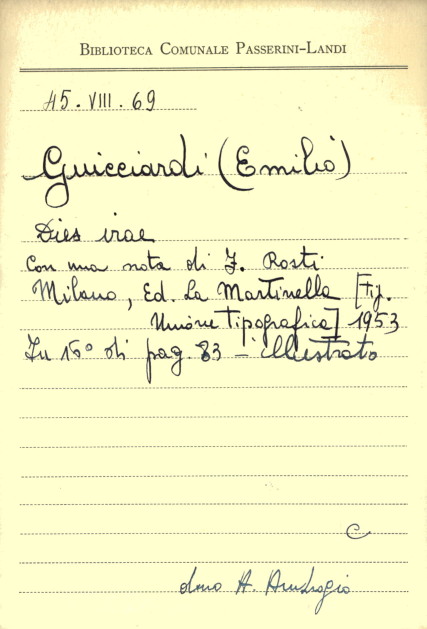 BIBLIOTECA COMUNALE PASSERINI-LANDI
45.VIII.69
Guicciardi (Emilio)
Dies irae
Con una nota di J. Rosti
Milano, Ed. La Martinella [Tip.
Unione Tipografica] 1953
In 16° di pag. 83 - illustrato
C
dono A. Ambrogio